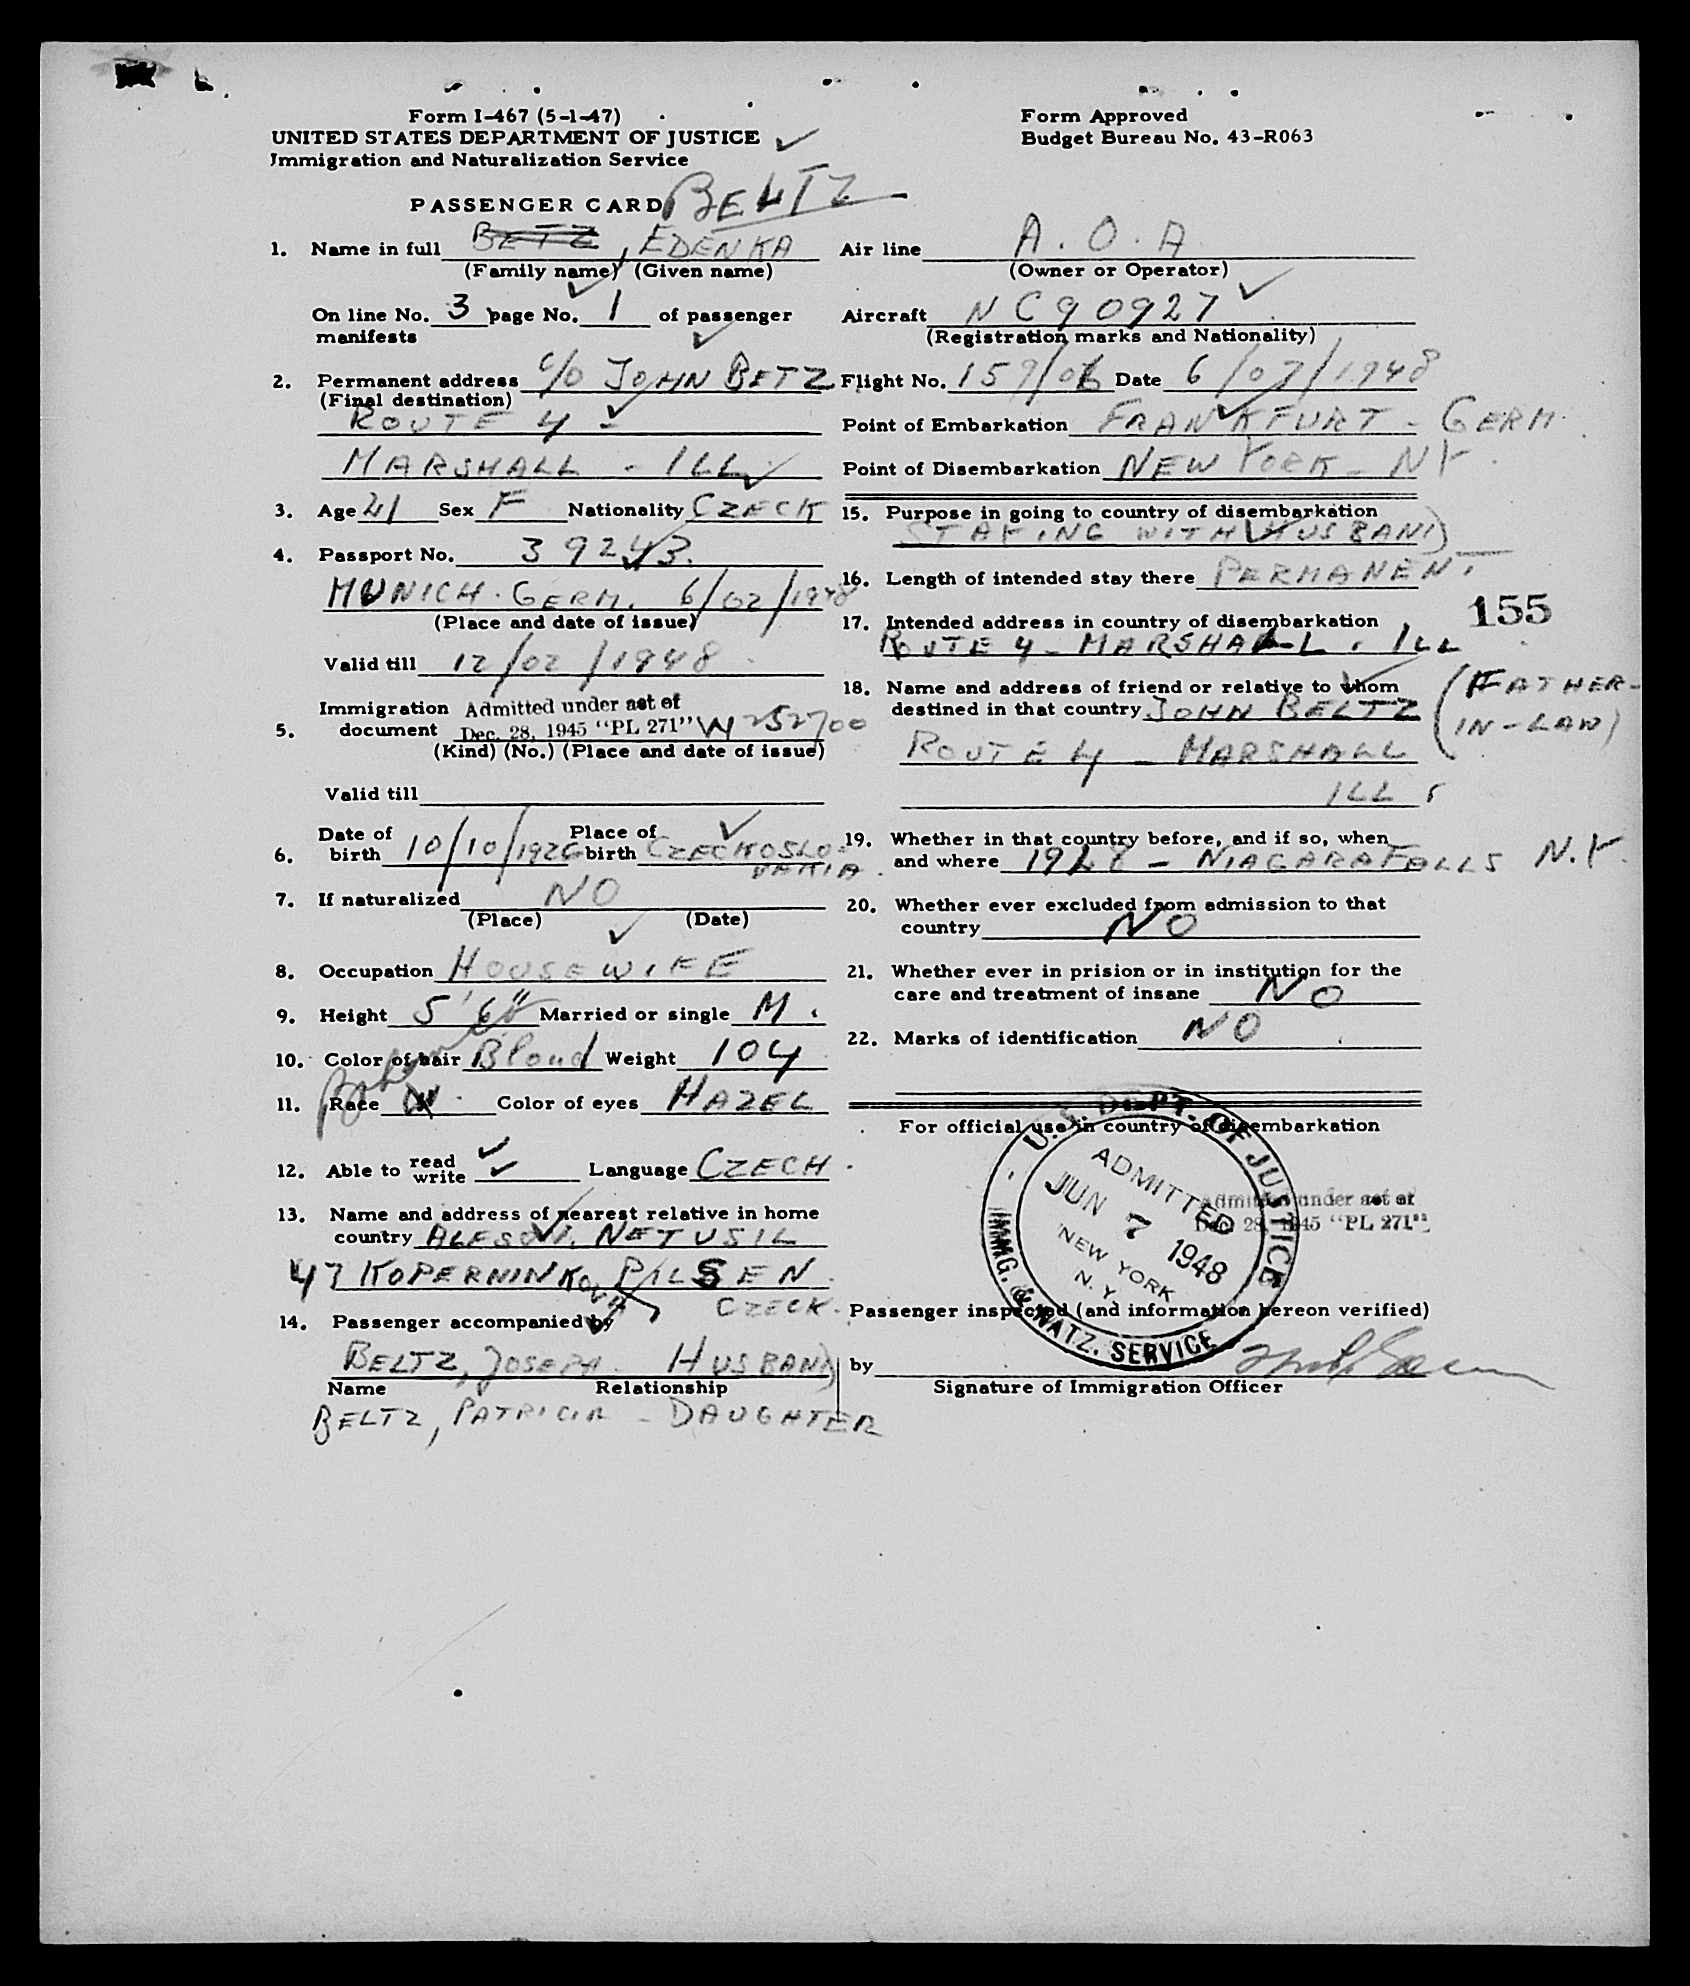 Form I-467 (5-1-47)
UNITED STATES DEPARTMENT OF JUSTICE
Immigration and Naturalization Service
Form Approved
Budget Bureau No. 43-R063
PASSENGER CARD BELTZ
1. Name in full BETZ, EDENKA
(Family name) (Given name)
On line No. 3 page No. 1 of passenger
manifests
2. Permanent address c/o JOHN BETZ
(Final destination)
ROUTE 4
MARSHALL - ILL
3. Age 21 Sex F Nationality CZECK
4. Passport No. 39243.
MUNICH. GERM. 6/02/1948
(Place and date of issue)
Valid till 12/02/1948
5. Immigration document Admitted under act of
Dec. 28, 1945 "PL 271" W 252700
(Kind) (No.) (Place and date of issue)
Valid till
6. Date of birth 10/10/1926 Place of birth CZECKOSLO-
VAKIA.
7. If naturalized NO
(Place) (Date)
8. Occupation HOUSEWIFE
9. Height 5'6" Married or single M.
10. Color of hair Blond Weight 104
11. Race W Color of eyes HAZEL
12. Able to read write Language CZECH.
13. Name and address of nearest relative in home
country NETUSIL
47 KOPERNINKOVA PILSEN
CZECK.
14. Passenger accompanied by
BELTZ, JOSEPH. HUSBAND
Name Relationship
BELTZ, PATRICIA - DAUGHTER
Air line A.O.A
(Owner or Operator)
Aircraft NC90927
(Registration marks and Nationality)
Flight No. 159/06 Date 6/07/1948
Point of Embarkation FRANKFURT - GERM.
Point of Disembarkation NEW YORK - NY.
15. Purpose in going to country of disembarkation
STAYING WITH HUSBAND
16. Length of intended stay there PERMANENT
17. Intended address in country of disembarkation
155
ROUTE 4 - MARSHALL. ILL
18. Name and address of friend or relative to whom
destined in that country JOHN BELTZ (FATHER-
IN-LAW)
ROUTE 4 - MARSHALL
ILL.
19. Whether in that country before, and if so, when
and where - NIAGARA FALLS N.Y.
20. Whether ever excluded from admission to that
country NO
21. Whether ever in prision or in institution for the
care and treatment of insane NO
22. Marks of identification NO
For official use in country of disembarkation
U.S. DEPT. OF JUSTICE
ADMITTED
JUN 7 1948
NEW YORK
N.Y.
IMMG. & NATZ. SERVICE
Admitted under act of
Dec. 28, 1945 "PL 271"
Passenger inspected (and information hereon verified)
by
Signature of Immigration Officer